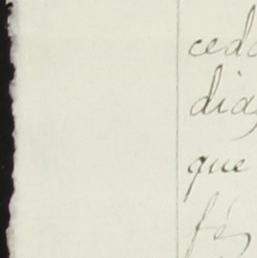 ced
dia
que
fé